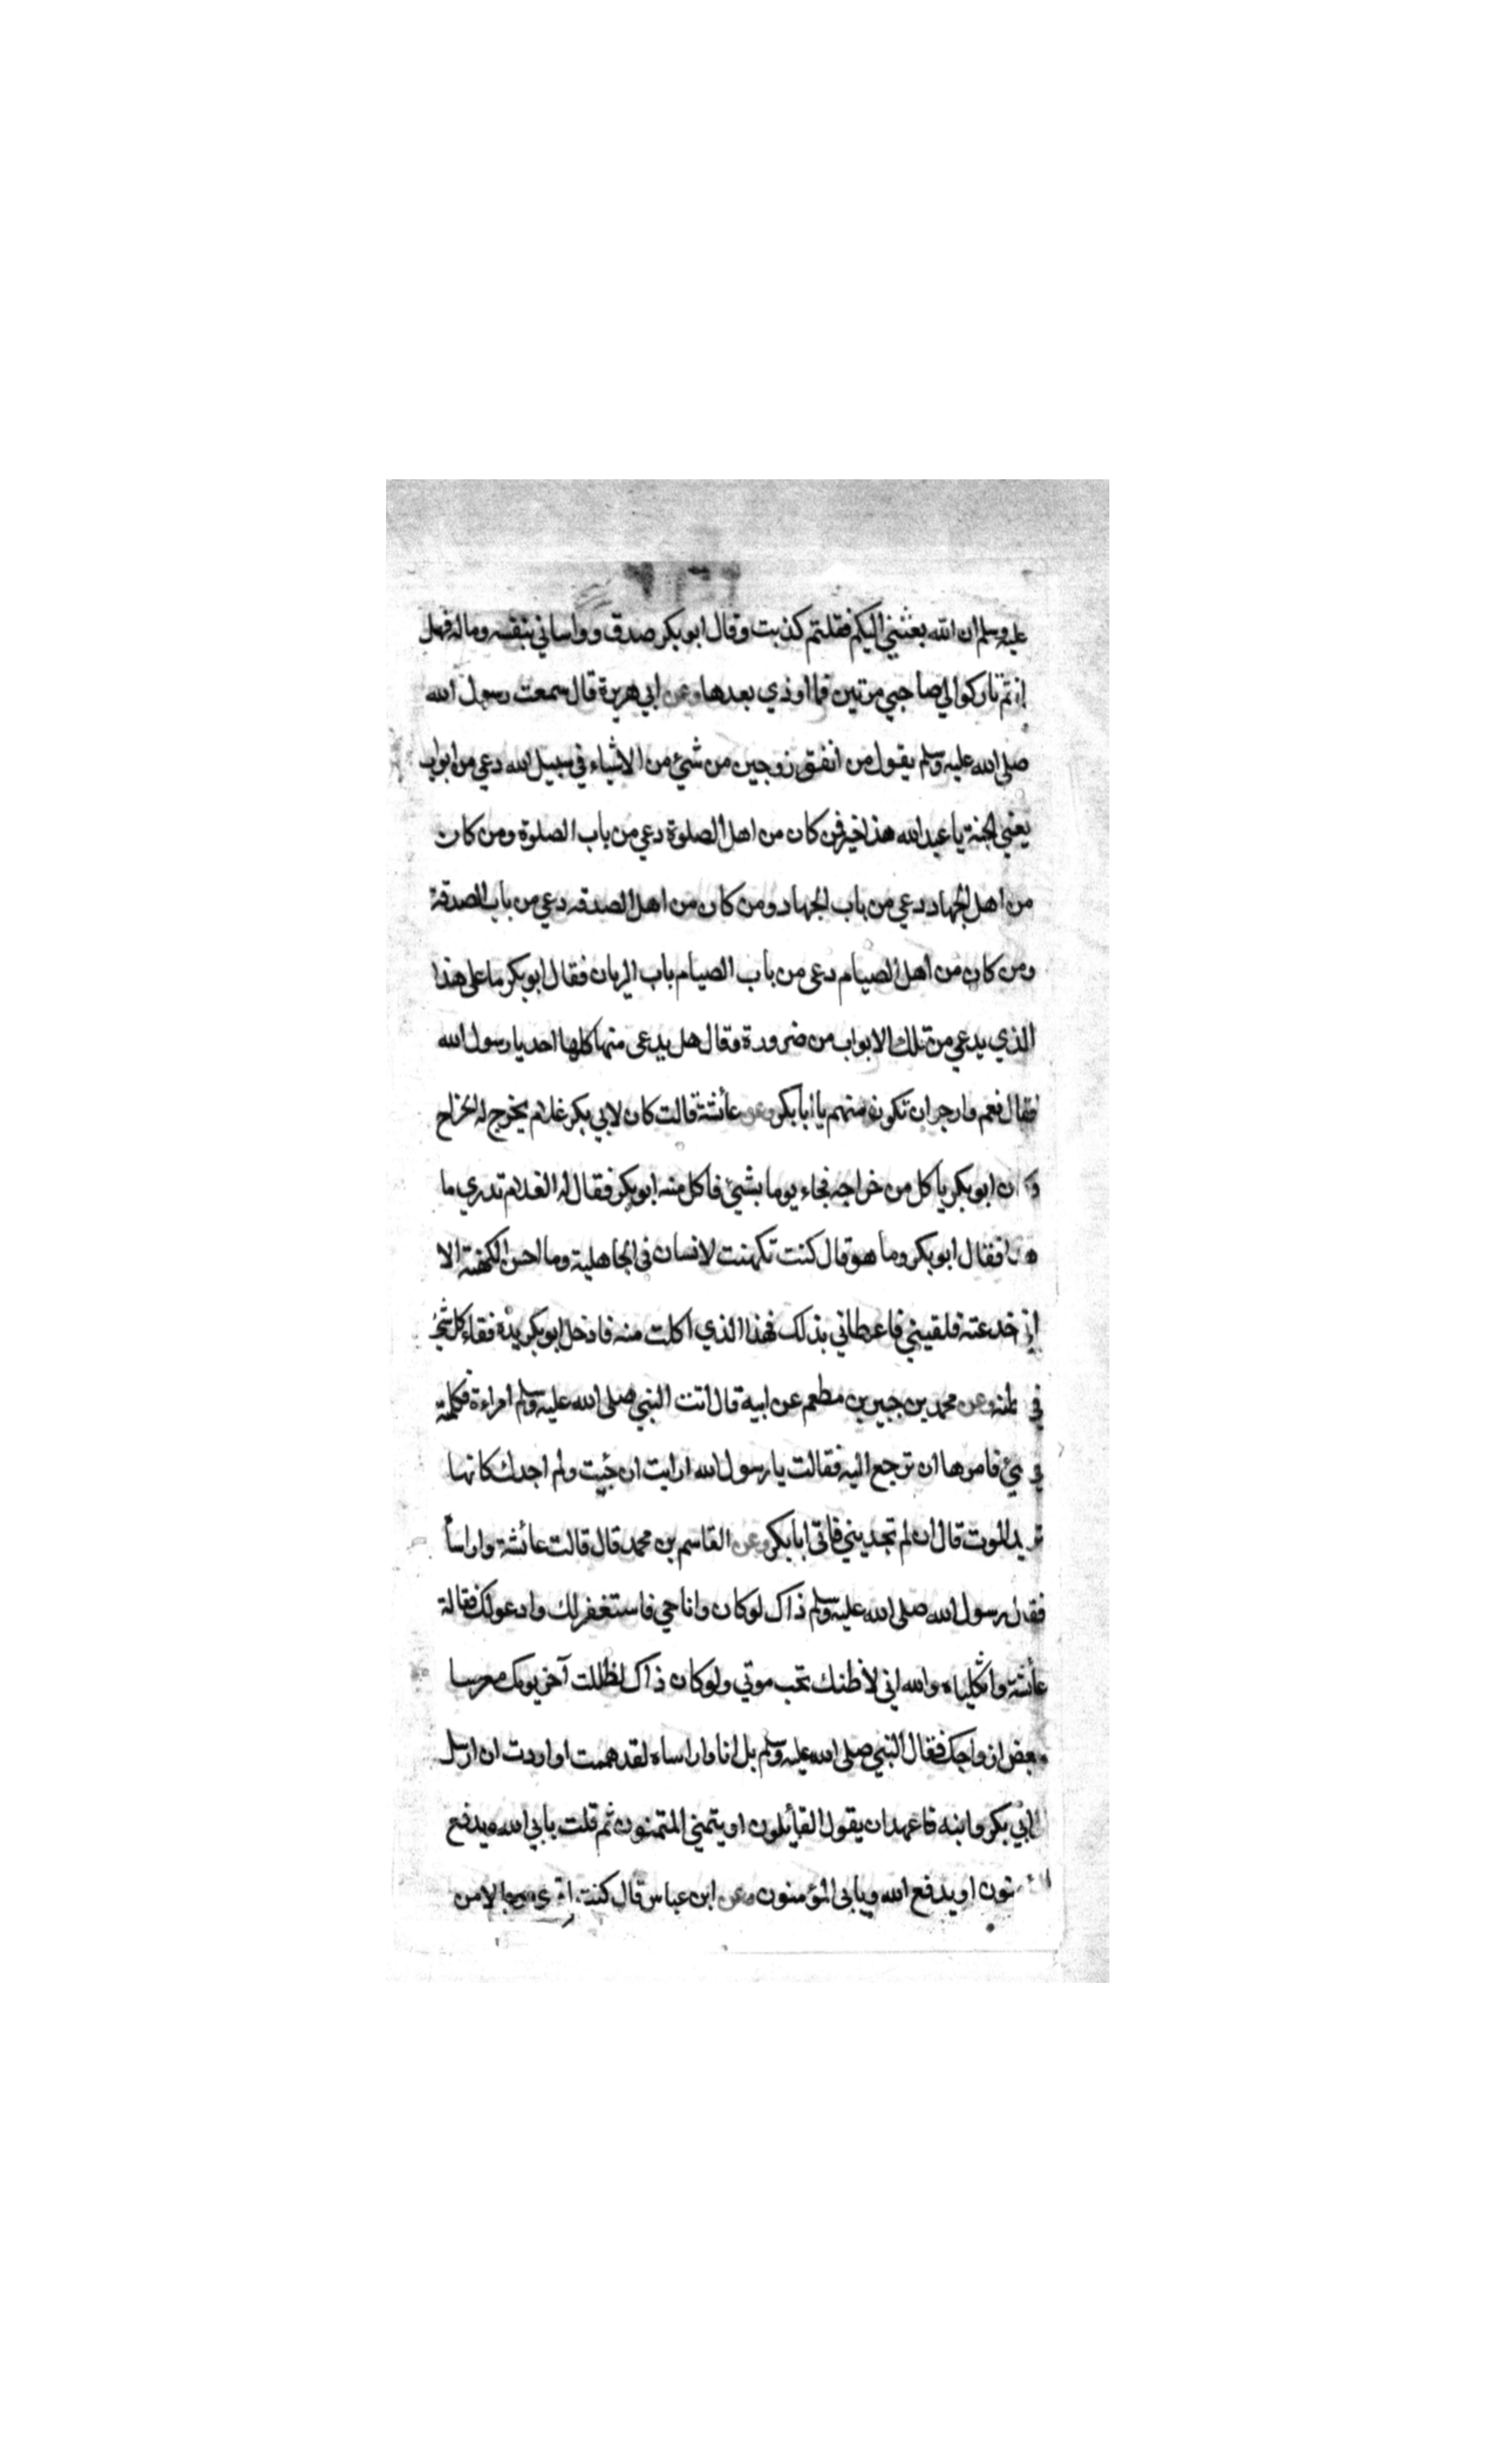 عليه وسلم ان الله بعثني اليكم فقلتم كذبت وقال ابو بكر صدق وواساني بنفسه وماله فهل
انتم تاركوا لي صاحبي مرتين فما اوذي بعدها وعن ابي هريرة قال سمعت رسول الله
صلى الله عليه وسلم يقول من انفق زوجين من شيئ من الاشياء في سبيل الله دعي من ابواب
يعني الجنة يا عبد الله هذا خير فمن كان من اهل الصلوة دعي من باب الصلوة ومن كان
من اهل الجهاد دعي من باب الجهاد ومن كان من اهل الصدقه دعي من باب الصدقة
ومن كان من اهل الصيام دعى من باب الصيام باب الريان فقال ابو بكر ما على هذا
الذي يدعي من تلك الابواب من ضرورة وقال هل يدعى منها كلها احد يا رسول الله
فقال نعم وارجو ان تكون منهم يا ابا بكر وعن عائشة قالت كان لابي بكر غلام يخرج له الخراج
وكان ابو بكر ياكل من خراجه فجاء يوما بشيئ فاكل منه ابو بكر فقال له الغلام تدري ما
هذا فقال ابو بكر وما هو قال كنت تكهنت لانسان في الجاهلية وما احسن الكهنة الا
اني خدعته فلقيني فاعطاني بذلك فهذا الذي اكلت منه فادخل ابو بكر يده فقاء كل شيئ
في بطنه وعن محمد بن جبير بن مطعم عن ابيه قال اتت النبي صلى الله عليه وسلم امراءة فكلمته
في شيئ فامرها ان ترجع اليه فقالت يا رسول الله ارايت ان جئت ولم اجدك كانها
تريد الموت قال ان لم تجديني فاتي ابا بكر وعن القاسم بن محمد قال قالت عائشة واراساه
فقال رسول الله صلى الله عليه وسلم ذاك لو كان وانا حي فاستغفر لك وادعو لك فقالة
عائشة واثكلياه والله اني لاظنك تحب موتي ولو كان ذاك لظللت آخر يومك معرسا
ببعض ازواجك فقال النبي صلى الله عليه وسلم بل انا واراساه لقد هممت او اردت ان ارسل
الي ابي بكر وابنه فاعهد ان يقول القائلون او يتمني المتمنون ثم قلت يابي الله ويدفع
المؤمنون او يدفع الله ويابى المؤمنون وعن ابن عباس قال كنت اقرى رجالا من